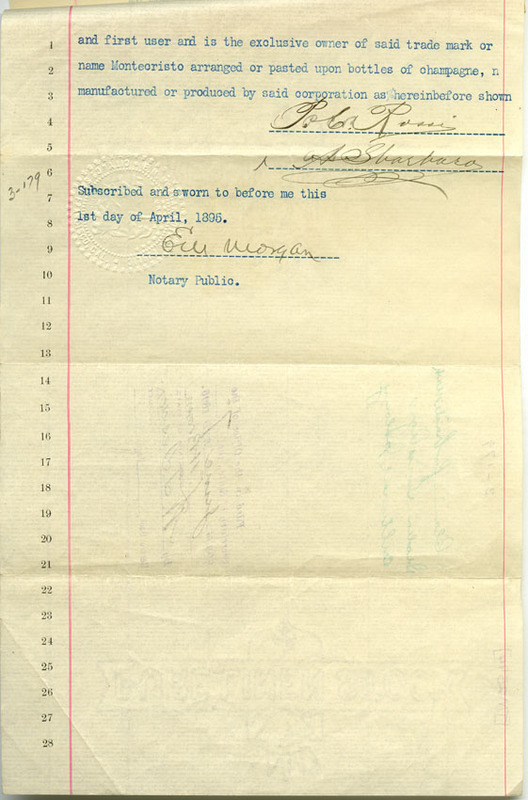 1 and first user and is the exclusive owner of said trade mark or
2 name Montecristo arranged or pasted upon bottles of champagne, n
3 manufactured or produced by said corporation as hereinbefore shown
4 P. C. Rossi
5
6 A Sbarboro
3-179
7 Subscribed and sworn to before me this
8 1st day of April, 1895.
9 E M Morgan
10 Notary Public.
11
12
13
14
15
16
17
18
19
20
21
22
23
24
25
26
27
28